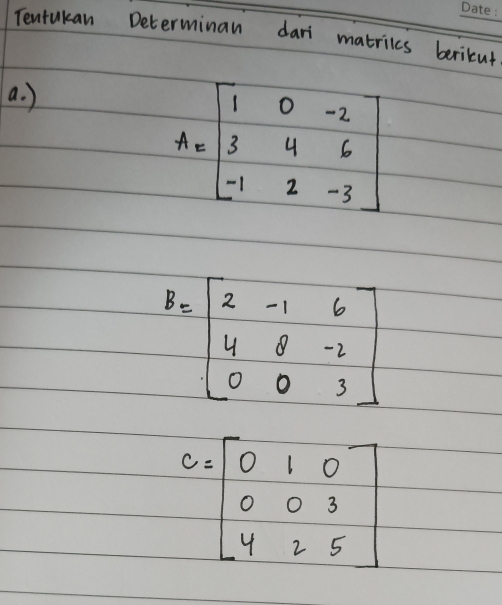 Date :
Tentukan Determinan dari matriks berikut.
a.)
A = [1 0 -2
3 4 6
-1 2 -3]
B = [2 -1 6
4 8 -2
0 0 3]
C = [0 1 0
0 0 3
4 2 5]